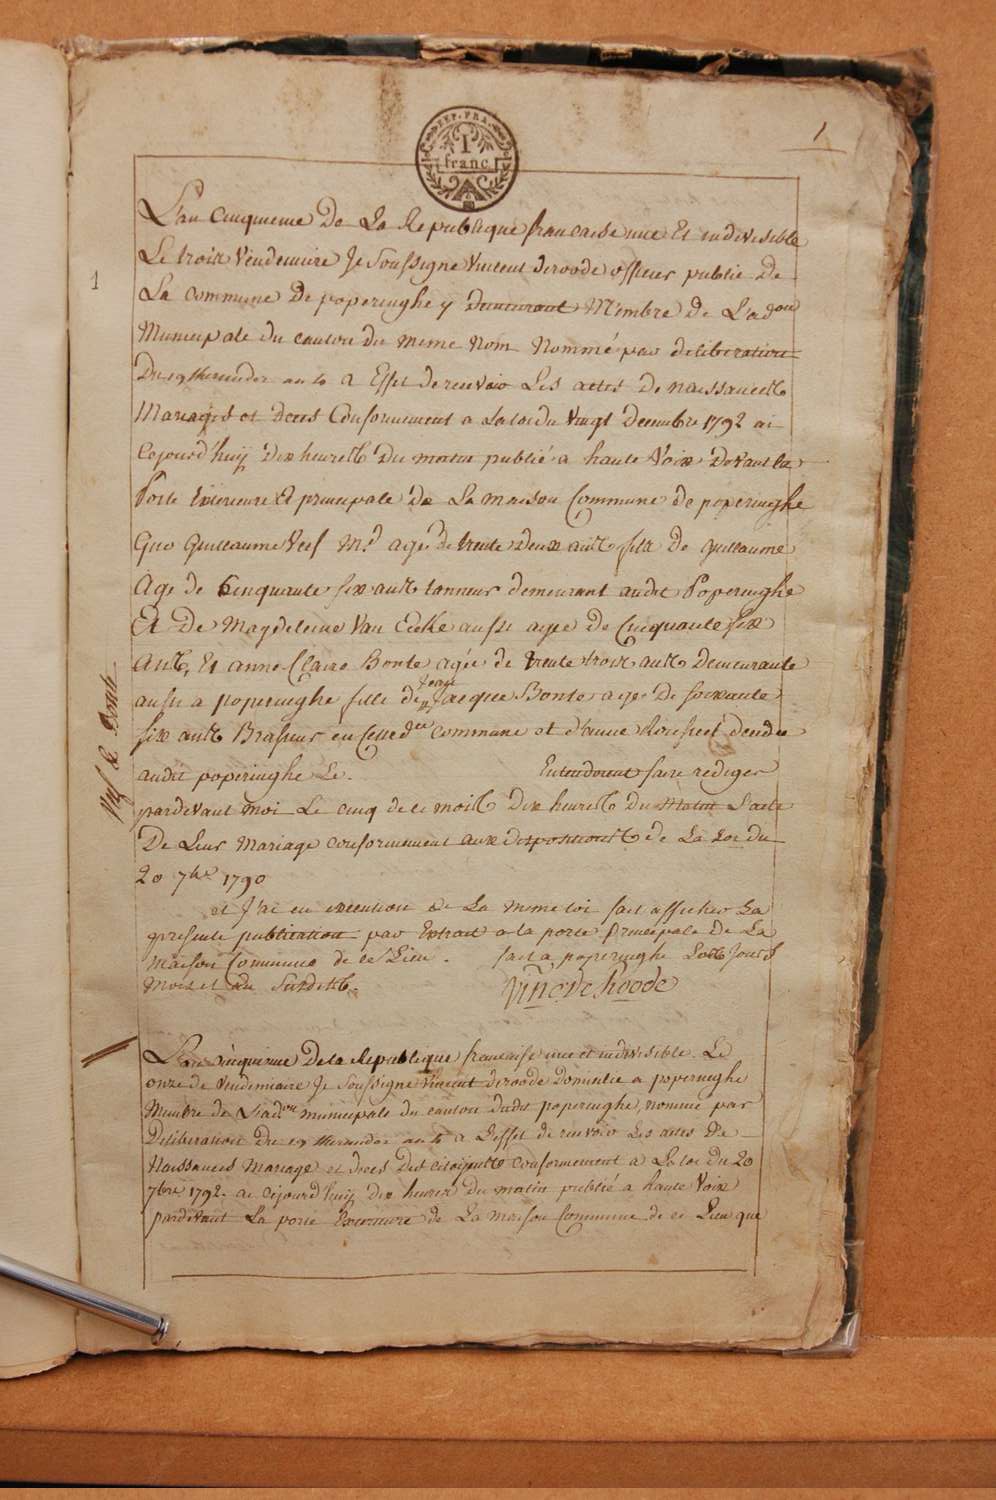 REP. FRA.
1
franc
1
L'an Cinquieme De La Republique francaise une Et indivisible
Le troix Vendemiaire Je Soussigne Vincent deroode officier publie De
1
La Commune De poperinghe y demeurant Membre de L'adon
Municipale du canton du meme Nom Nommé par deliberation
Du 19 thermidor an 4 a Effet de recevoir Les actes De naissances
Mariages et deces Conformement a La loi du Vingt Decembre 1792 ai
Cejourd'huij Dix heures Du matin publié a haute Voix Devant la
Porte Exterieure Et principale De La maison Commune de poperinghe
Que Guillaume Veel Md agé de trente deux ans fils de guillaume
Age de Cinquante six ans tanneur demeurant audit Poperinghe
Et De Magdeleine Van Eecke aussi agee de Cinquante six
Ans, Et anne Claire Bonte agée de trente troix ans Demeurante
aussi a poperinghe fille de Jacque Bonte agé De soixante
six ans Brasseur en Cette commune et d'anne
audit poperinghe Le. Entendoient faire rediger
pardevant moi Le cinq de ce mois Dix heures du Matin L'acte
De Leur Mariage conformement aux dispositions de La Loi du
20 7bre 1790
et J'ai en execution de La meme loi fait afficher La
presente publication par Extrait a la porte Principale de La
Maison Commune de ce Lieu. fait a poperinghe Les Jours
Mois et an Susdits.
L'an cinquieme De la Republique francaise une et indivisible. Le
onze de Vendemiaire Je Soussigne Vincent deroode Domicilie a poperinghe
Membre de L'adon municipale du canton dudit poperinghe, nommé par
Deliberation Du 19 thermidor an 4 a L'effet de recevoir Les actes De
Naissances Mariage et deces Des citoijens conformement a La loi du 20
7bre 1792. ai cejourd'huij dix heures du matin publié a haute Voix
pardevant La porte Exterieure de La maison Commune de ce Lieu que